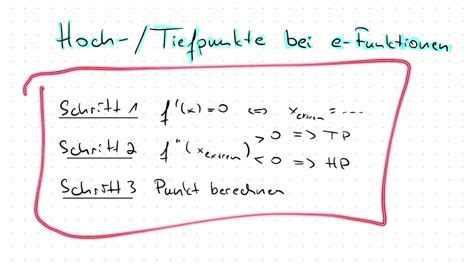 Hoch-/Tiefpunkte bei e-Funktionen
Schritt 1 f'(x)=0 <=> x_extrem = ...
Schritt 2 f''(x_extrem) >0 => TP
<0 => HP
Schritt 3 Punkt berechnen